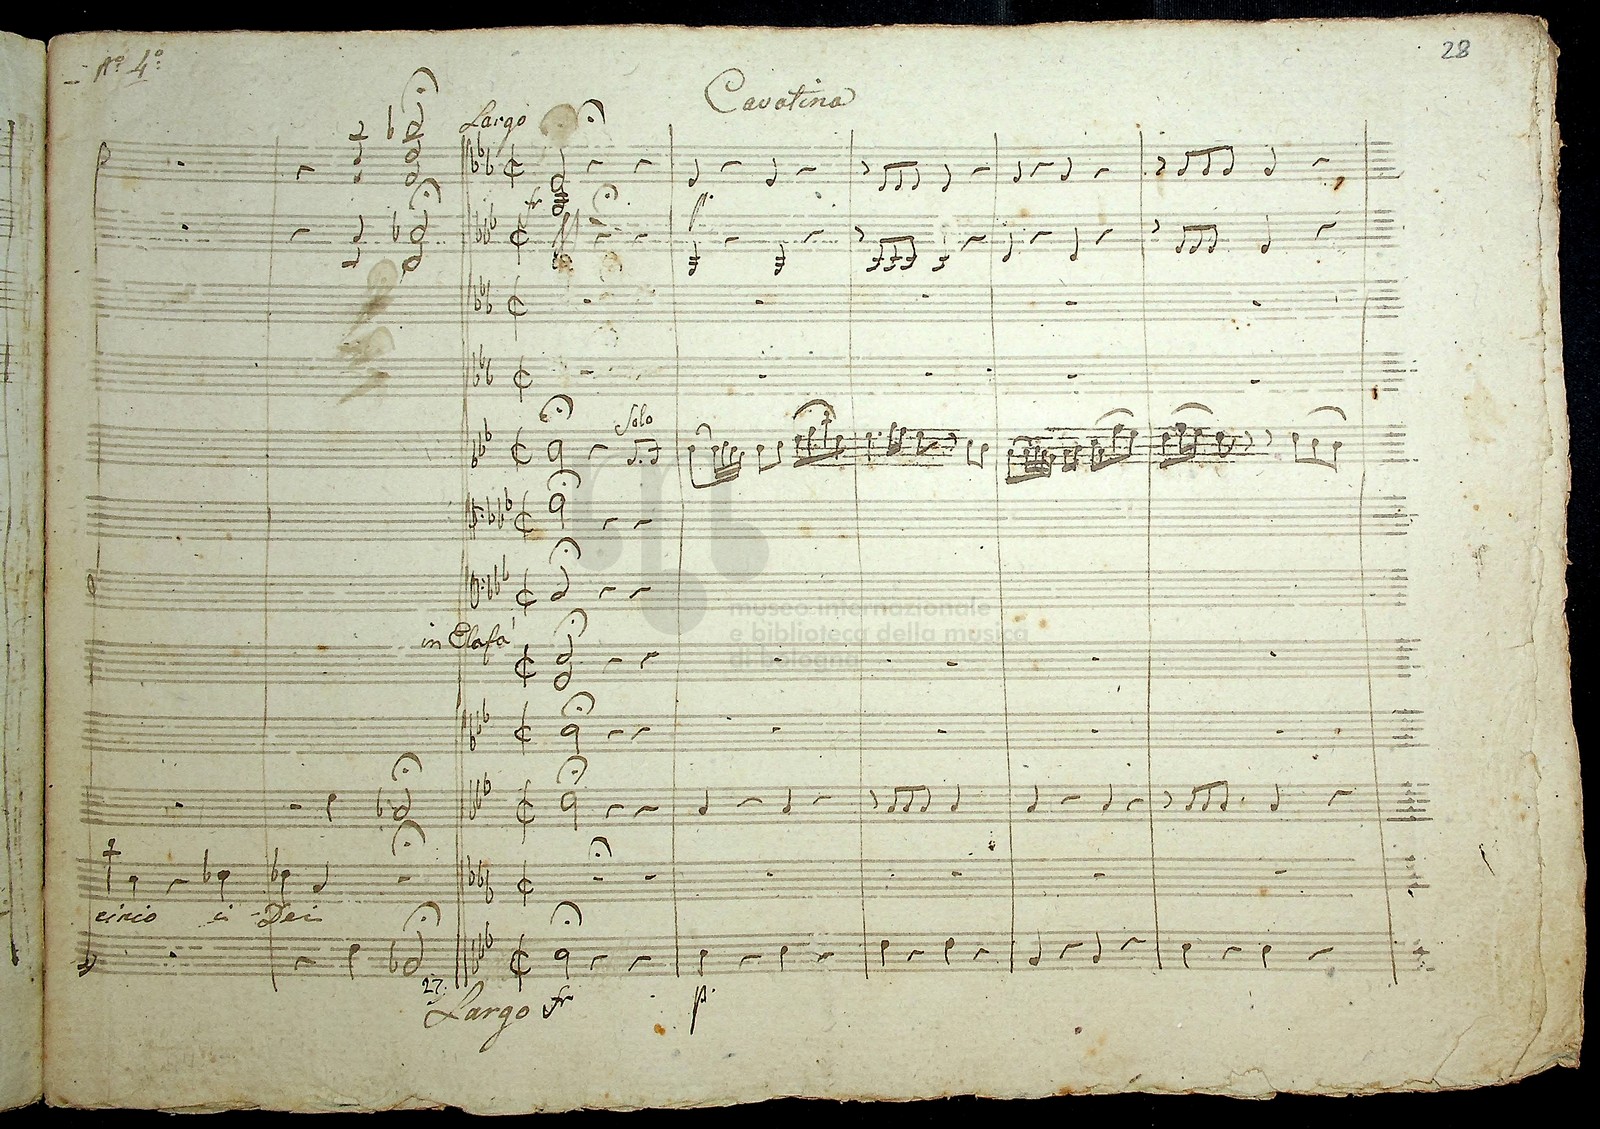 Nº 4º
28
Cavatina
Largo
fr
p.
Solo
museo internazionale
e biblioteca della musica
di bologna
in Elafà
ci - Dei
27.
Largo fr
p.